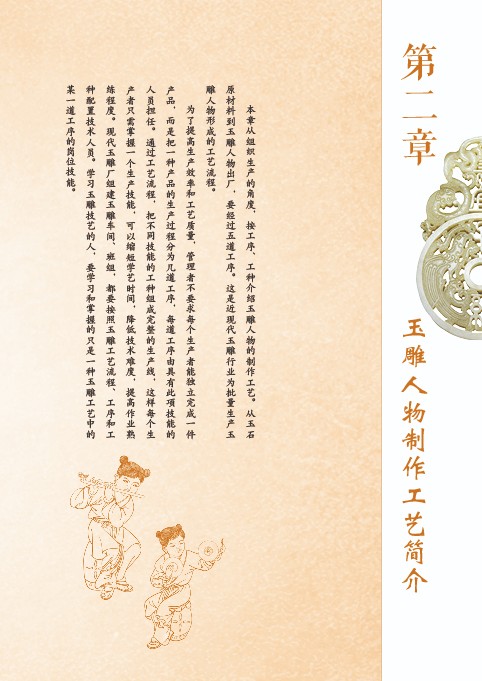 第二章
玉雕人物制作工艺简介
本章从组织生产的角度，按工序、工种介绍玉雕人物的制作工艺。从玉石
原材料到玉雕人物出厂，要经过五道工序。这是近现代玉雕行业为批量生产玉
雕人物形成的工艺流程。
为了提高生产效率和工艺质量，管理者不要求每个生产者能独立完成一件
产品，而是把一种产品的生产过程分为几道工序，每道工序由具有此项技能的
人员担任。通过工艺流程，把不同技能的工种组成完整的生产线，这样每个生
产者只需掌握一个生产技能，可以缩短学艺时间，降低技术难度，提高作业熟
练程度。现代玉雕厂组建玉雕车间、班组，都要按照玉雕工艺流程、工序和工
种配置技术人员。学习玉雕技艺的人，要学习和掌握的只是一种玉雕工艺中的
某一道工序的岗位技能。